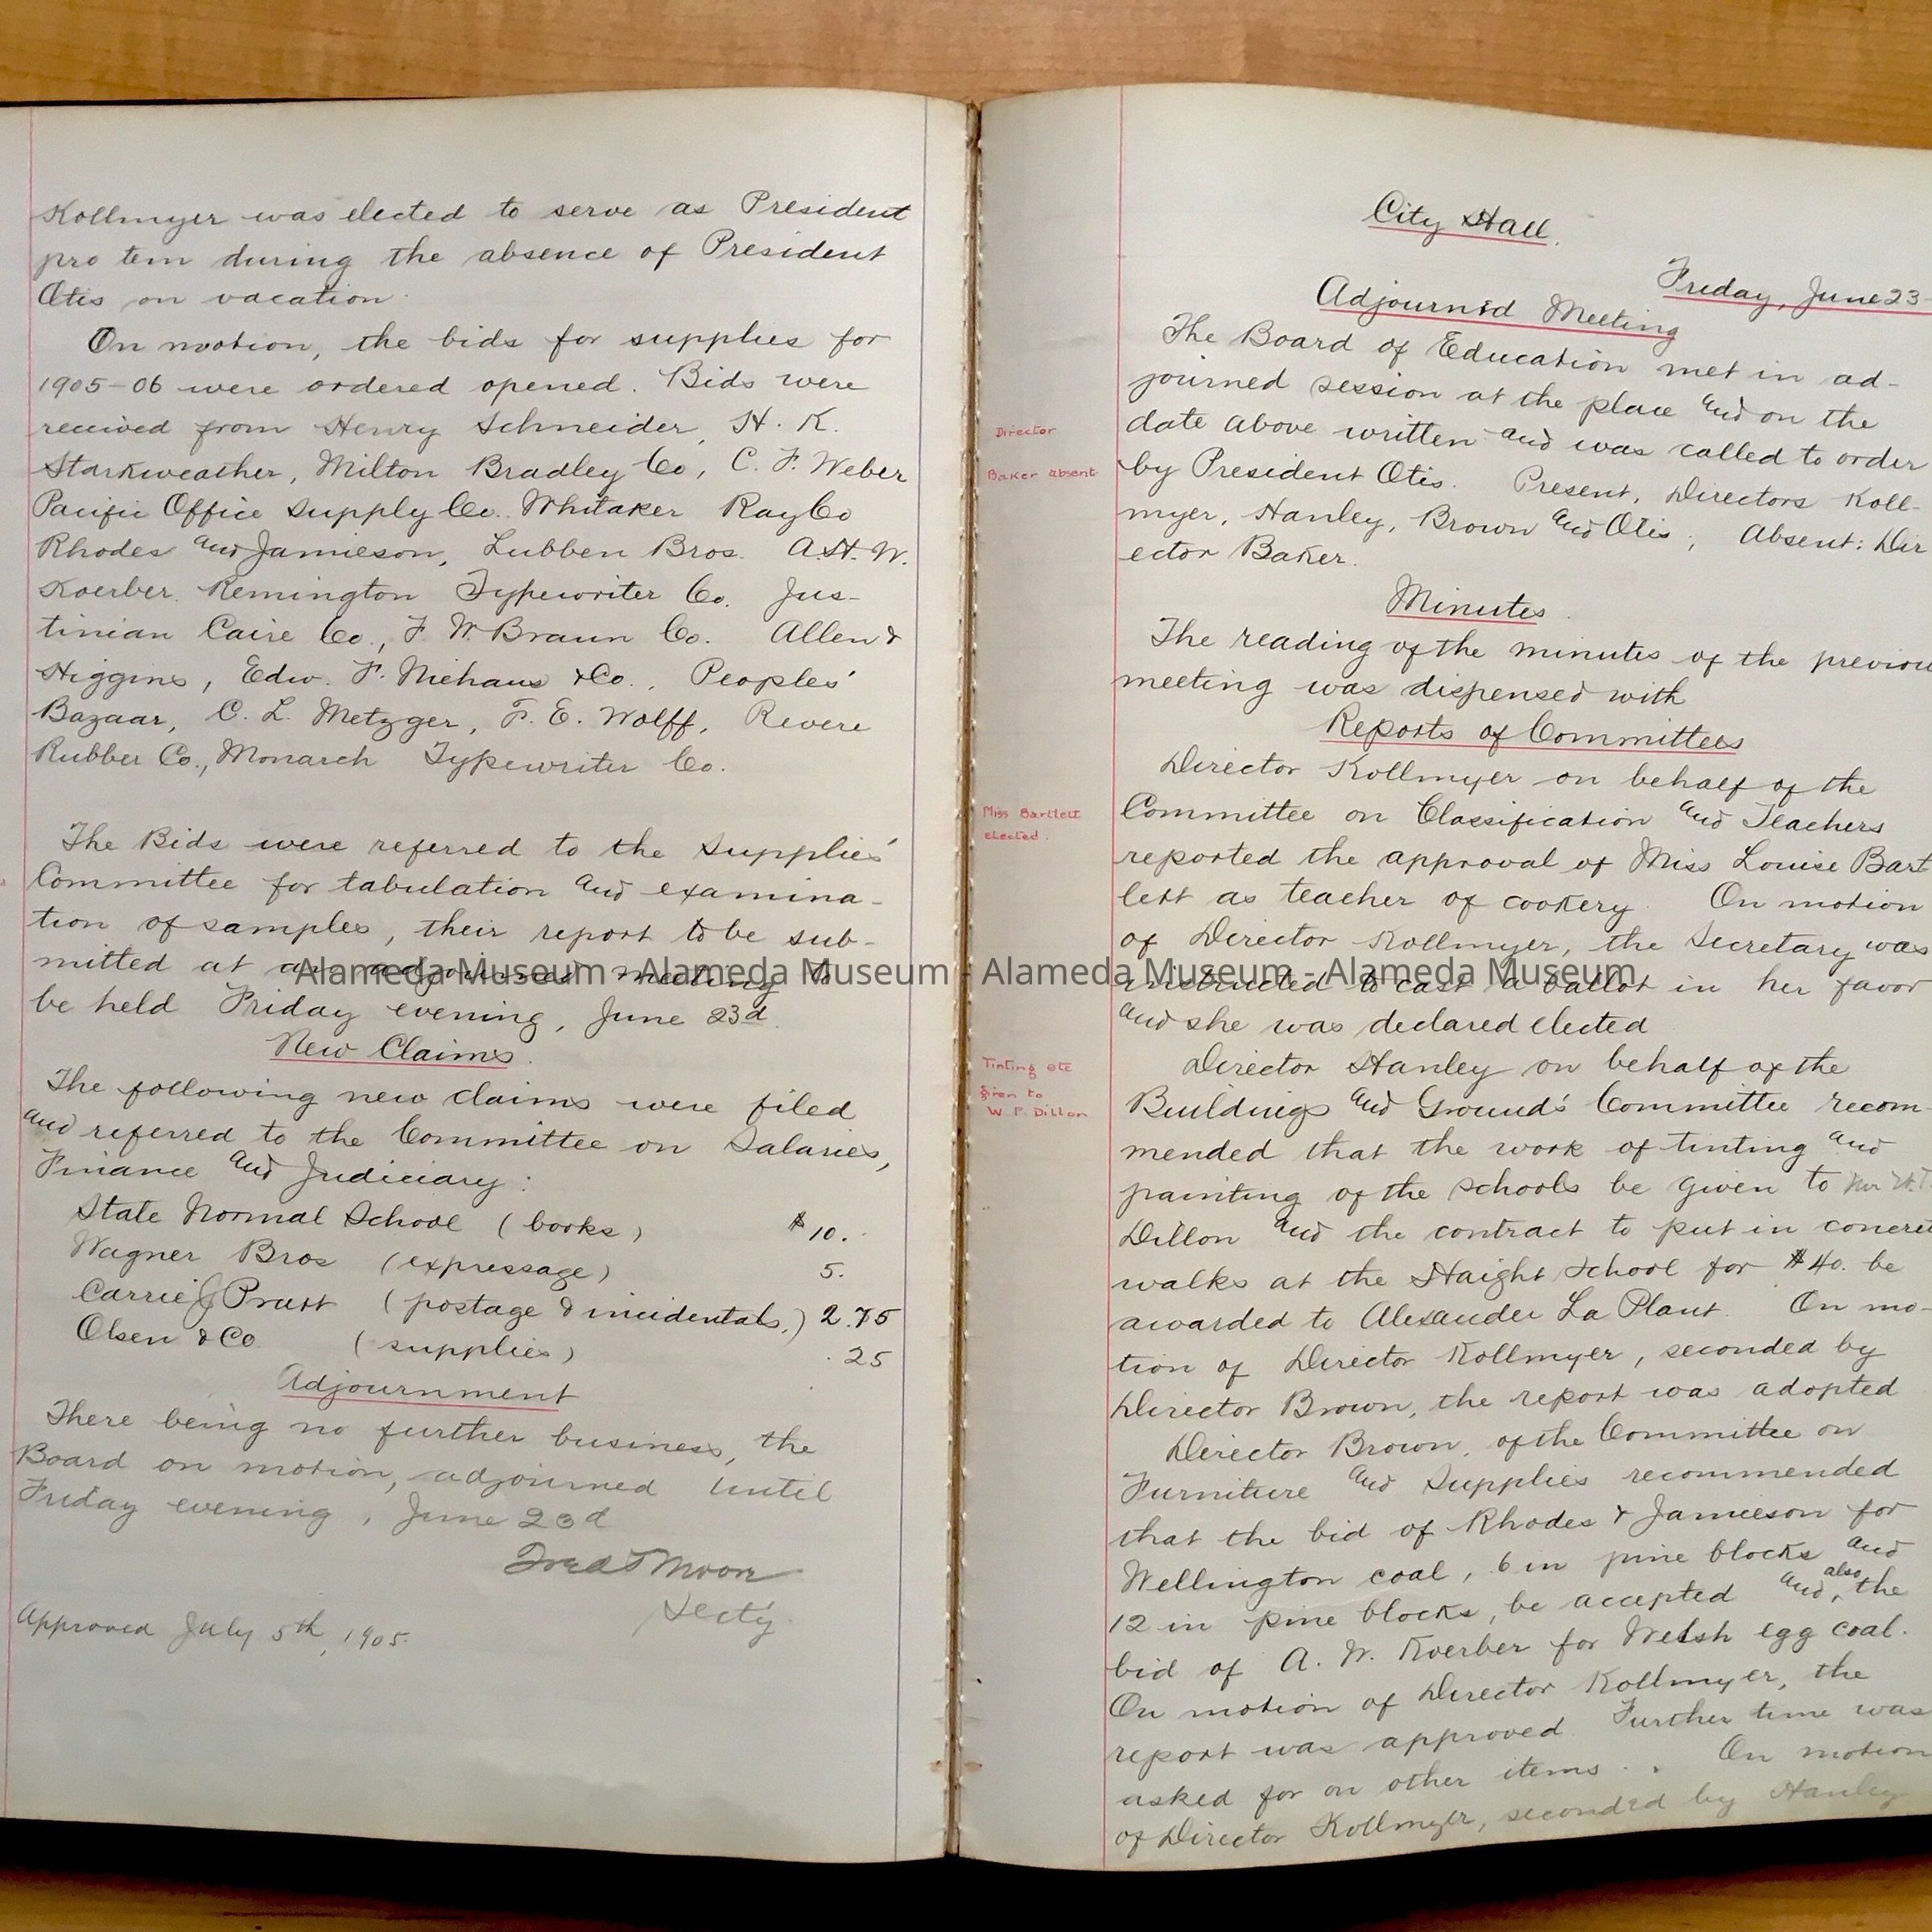 Kollmyer was elected to serve as President
pro tem during the absence of President
Otis on vacation.
On motion, the bids for supplies for
1905-06 were ordered opened. Bids were
received from Henry Schneider, H. K.
Starkweather, Milton Bradley Co, C. F. Weber
Pacific Office Supply Co. Whitaker Ray Co
Rhodes and Jamieson, Lubben Bros. A.H.W.
Koerber. Remington Typewriter Co. Jus-
tinian Caire Co., F. W. Braun Co. Allen &
Higgins, Edw. F. Niehaus & Co., Peoples'
Bazaar, C. L. Metzger, F. E. Wolff, Revere
Rubber Co., Monarch Typewriter Co.
The Bids were referred to the Supplies'
Committee for tabulation and examina-
tion of samples, their report to be sub-
mitted at an adjourned meeting to
be held Friday evening, June 23d
New Claims.
The following new claims were filed
and referred to the Committee on Salaries,
Finance and Judiciary:
State Normal School (books) $10.
Wagner Bros (expressage) 5.
Carrie J Pratt (postage & incidentals.) 2.75
Olsen & Co. (supplies) .25
Adjournment
There being no further business, the
Board on motion, adjourned until
Friday evening, June 23d
Fred T Moon
Secty.
Approved July 5th, 1905.
City Hall.
Friday, June 23-
Adjourned Meeting
The Board of Education met in ad-
journed session at the place and on the
date above written and was called to order
by President Otis. Present, Directors Koll-
myer, Hanley, Brown and Otis; Absent: Dir
ector Baker.
Director
Baker absent
Minutes.
The reading of the minutes of the previou
meeting was dispensed with
Reports of Committees
Director Kollmyer on behalf of the
Committee on Classification and Teachers
reported the approval of Miss Louise Bart
lett as teacher of cookery. On motion
of Director Kollmyer, the Secretary was
instructed to cast a ballot in her favor
and she was declared elected
Miss Bartlett
elected.
Director Hanley on behalf of the
Buildings and Ground's Committee recom-
mended that the work of tinting and
painting of the schools be given to Mr W.P.
Dillon and the contract to put in concret
walks at the Haight School for $40. be
awarded to Alexander La Plant. On mo-
tion of Director Kollmyer, seconded by
Director Brown, the report was adopted
Tinting etc
given to
W. P. Dillon
Director Brown, of the Committee on
Furniture and Supplies recommended
that the bid of Rhodes & Jamieson for
Wellington coal, 6 in pine blocks and
12 in pine blocks, be accepted and, also the
bid of A. W. Koerber for Welsh egg coal.
On motion of Director Kollmyer, the
report was approved. Further time was
asked for on other items. . On motion
of Director Kollmyer, seconded by Hanley
Alameda Museum - Alameda Museum - Alameda Museum - Alameda Museum